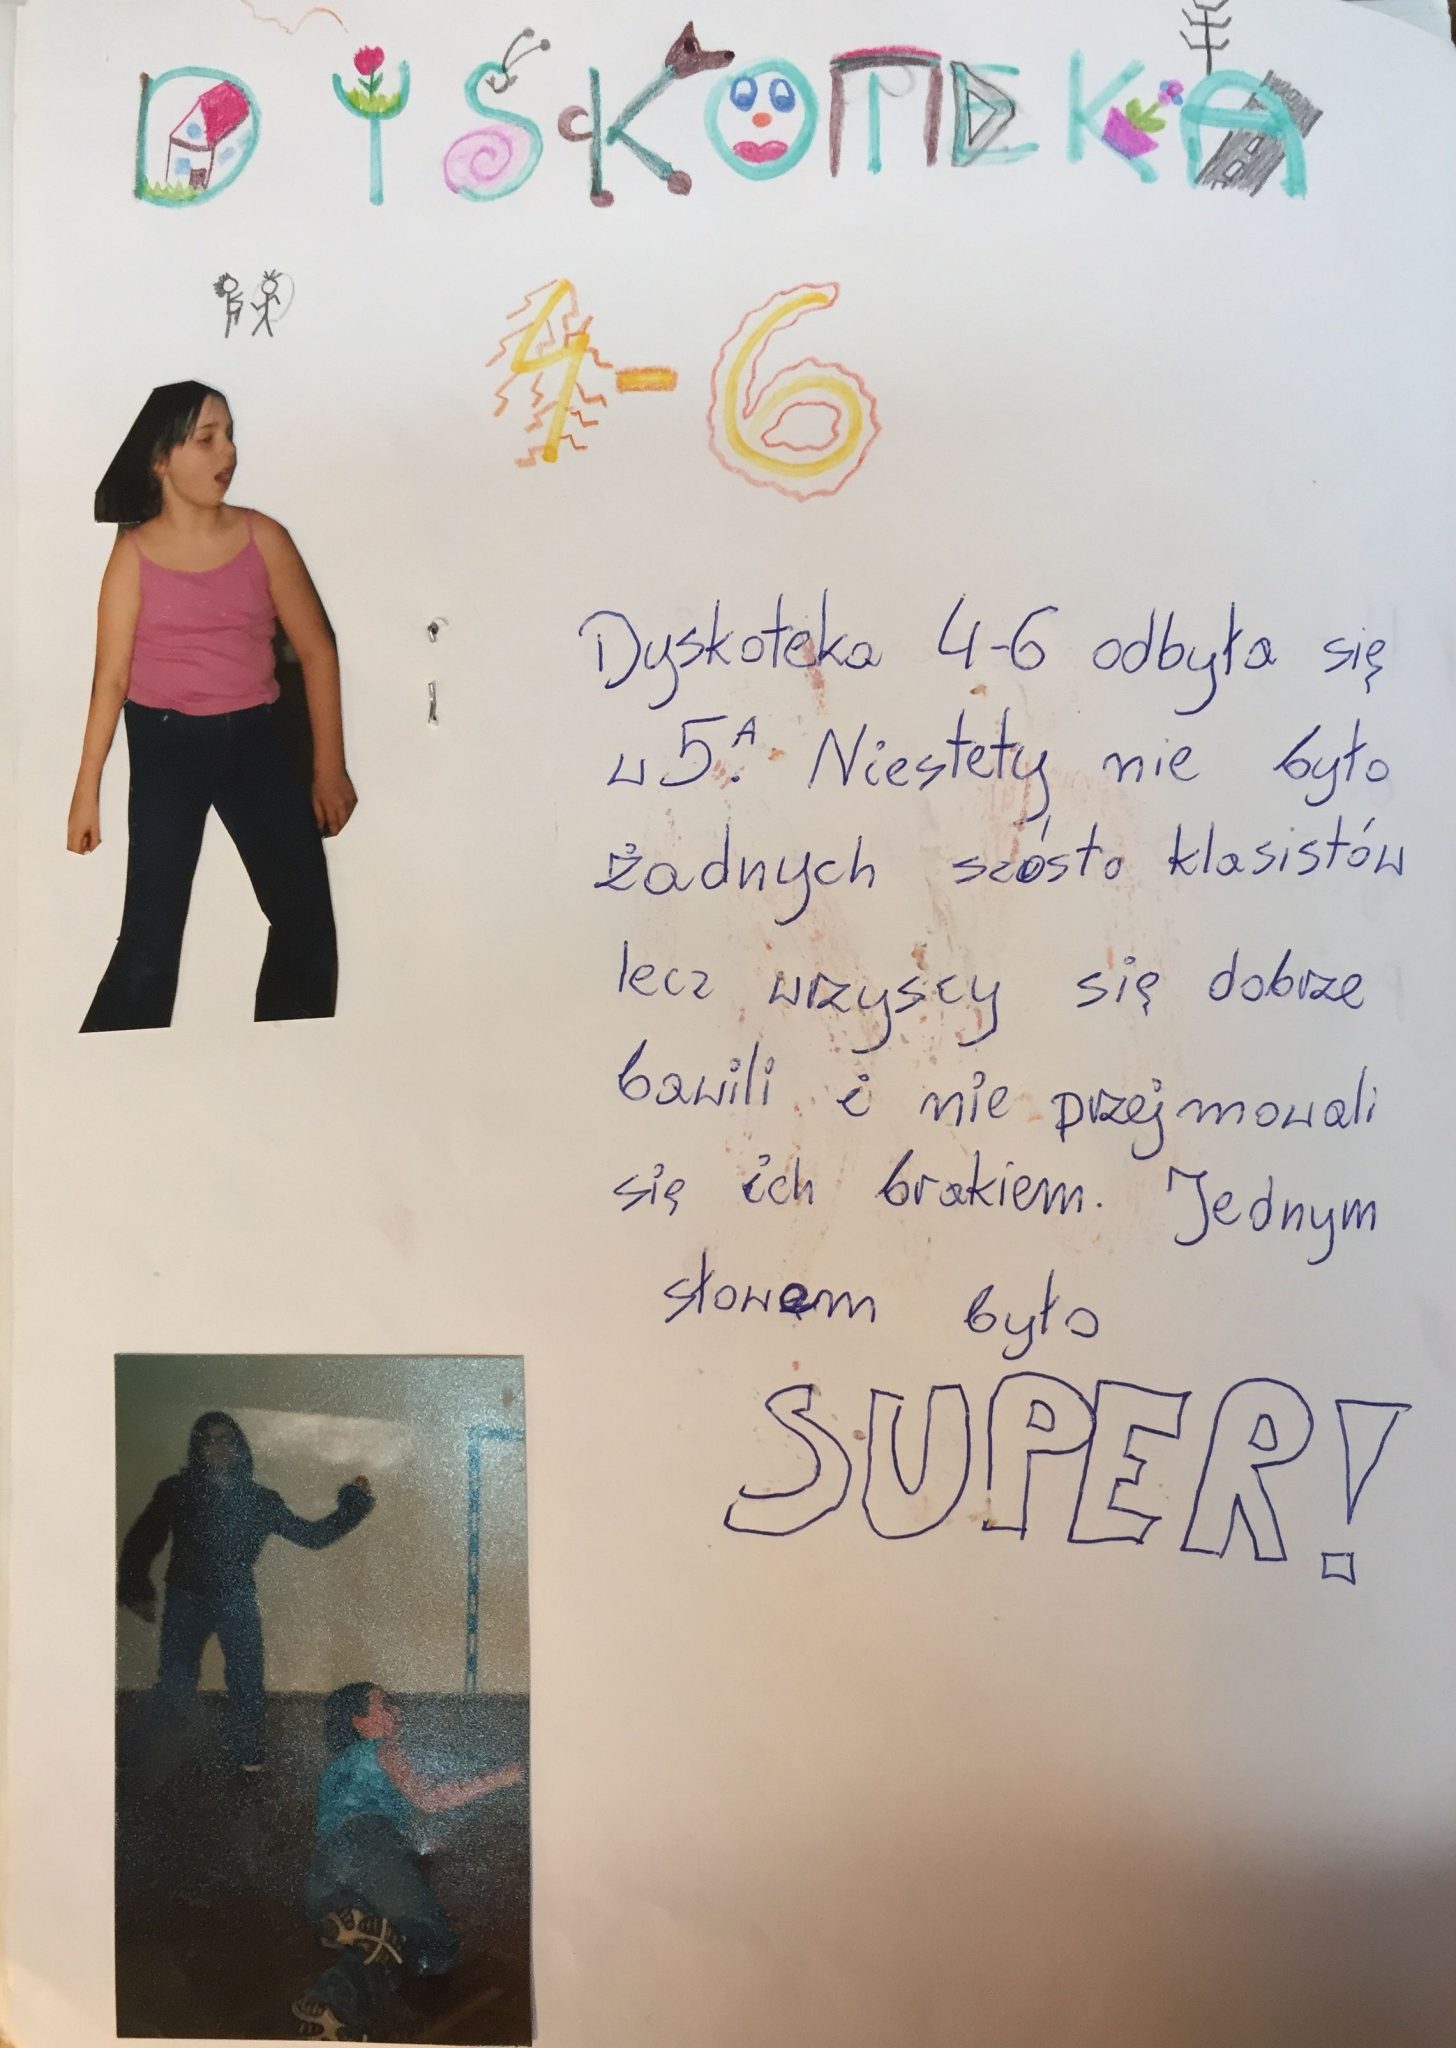 DYSKOTEKA
4-6
Dyskoteka 4-6 odbyła się
w 5.A Niestety nie było
żadnych szósto klasistów
lecz wrzyscy się dobrze
bawili i nie przejmowali
się ich brakiem. Jednym
słowem było
SUPER!